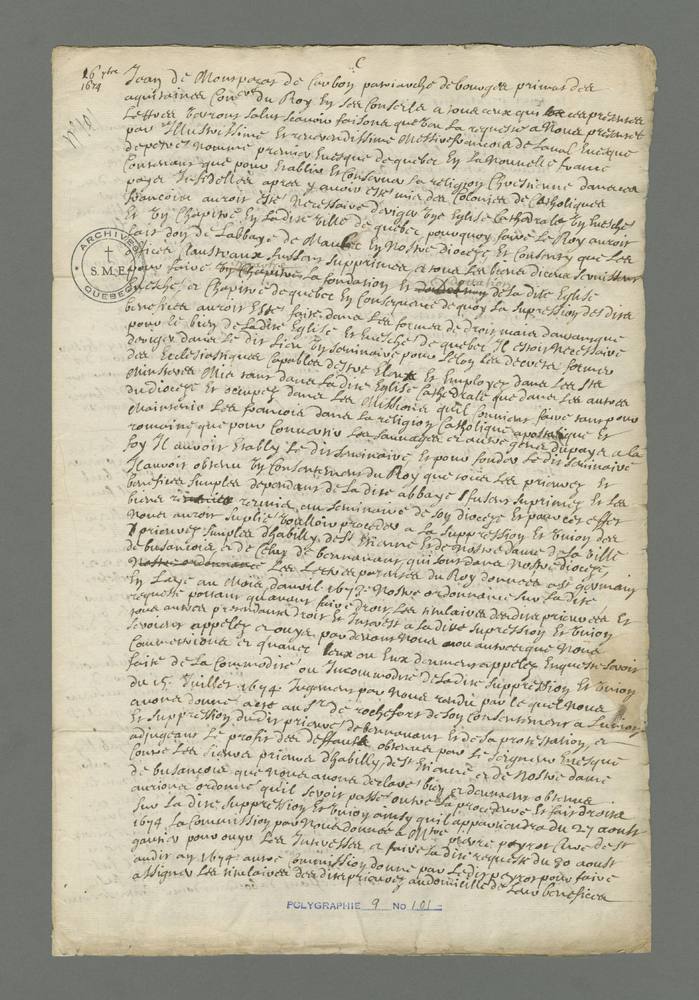 16 7bre
1674
Jean de Montpezat de Carbon patriarche de bourges primat des
aquitaines Coner du Roy En ses Conseils a tous ceux qui ces presentes
Lettres verront salut scavoir faisons que veu La requeste a Nous presentée
par Illustrissime Et reverendissime Messire francois de Laval Evesque
de petrée Nommé premier Evesque de quebec En La Nouvelle france
Contenant que pour Establir Et Conserver La religion Chrestienne dans ces
pays Infidelles apres y avoir Esté mis des Colonies de Catholiques
francois auroit Esté Necessaire deriger Une Eglise Cathedrale Un Evesché
Et Un Chapitre En Ladite Ville de quebec pourquoy faire Le Roy auroit
fait don de Labbaye de Maubec En Nostre diocese Et Consenty que Les
offices Claustraux fussent supprimés et tous Les biens diceux
pour faire La fondation Et dotation de La dite Eglise
Evesché et Chapitre de quebec En Consequence de quoy La supression desdits
benefices auroit Esté faite dans Les formes de droit mais dautant que
pour le bien de Ladite Eglise Et Evesché de quebec Il estoit Necessaire
deriger dans Le dit Lieu Un seminaire pour selon Les decrets former
des Ecclesiastiques Capables destre Et Employez dans Les
Ministeres dans Ladite Eglise Cathedrale que dans Les autres
du diocese Et occupez dans Les Missions quil Convient faire tant pour
Maintenir Les francois dans La religion Catholique apostolique Et
romaine que pour Convertir Les sauvages et autres gens du pays a la
foy Il auroit Estably Le dit seminaire Et pour fonder Le dit seminaire
Il auroit obtenu Un Consentement du Roy que tous Les prieurez Et
benefices simples dependans de La dite abbaye fussent suprimez Et Les
biens reunis au seminaire de son diocese Et pour cet effet
Nous auroit suplié Vouloir proceder a La suppression Et Union des
prieurez simples dhabilly, de St Etienne Et de Nostre dame de La Ville
de busancois et de Celuy de bernavant qui sont dans Nostre diocese,
Les Lettres patantes du Roy données a St germain
En Laye au Mois davril 1673 Nostre ordonnance sur La dite
requeste portant quavant faire droit Les titulaires desdits prieurez Et
tous autres pretendans droit Et Interest a La dite supression Et Union
seroient appelez et ouys par devant Nous ou autre que Nous
Commettrions et quant Eux ou Eux deument appelez Enqueste seroit
faite de La Commodité ou Incommodité de Ladite suppression Et Union
du 15 Juillet 1674 Jugement par Nous rendu par le quel Nous
avons donné acte au Sr de rochefort de son Consentement a Lunion
Et suppression dudit prieuré de bernavant Et de sa protestation, et
adjugeant Le profit des deffauts obtenus par Le seigneur Evesque
Contre Les sieurs prieurs dhabilly, de St Etienne et de Nostre dame
de busancois que Nous avons declaré bien et deument obtenus
aurions ordonné quil seroit passé outre La procedure Et fait droit
sur La dite suppression Et Union ainsy quil appartiendra du 27 aoust
1674 La Commission par Nous donnée a Mtre pierre peyrot Curé de St
gautier pour ouyr Les Interessez et faire La dite requeste du 30 aoust
audit an 1674 autre Commission donné par Ledit peyrot pour faire
assigner Les titulaires desdits prieurez au domicille de Leurs benefices
ARCHIVES
S.M.E.
QUEBEC
POLYGRAPHIE 9 No 101